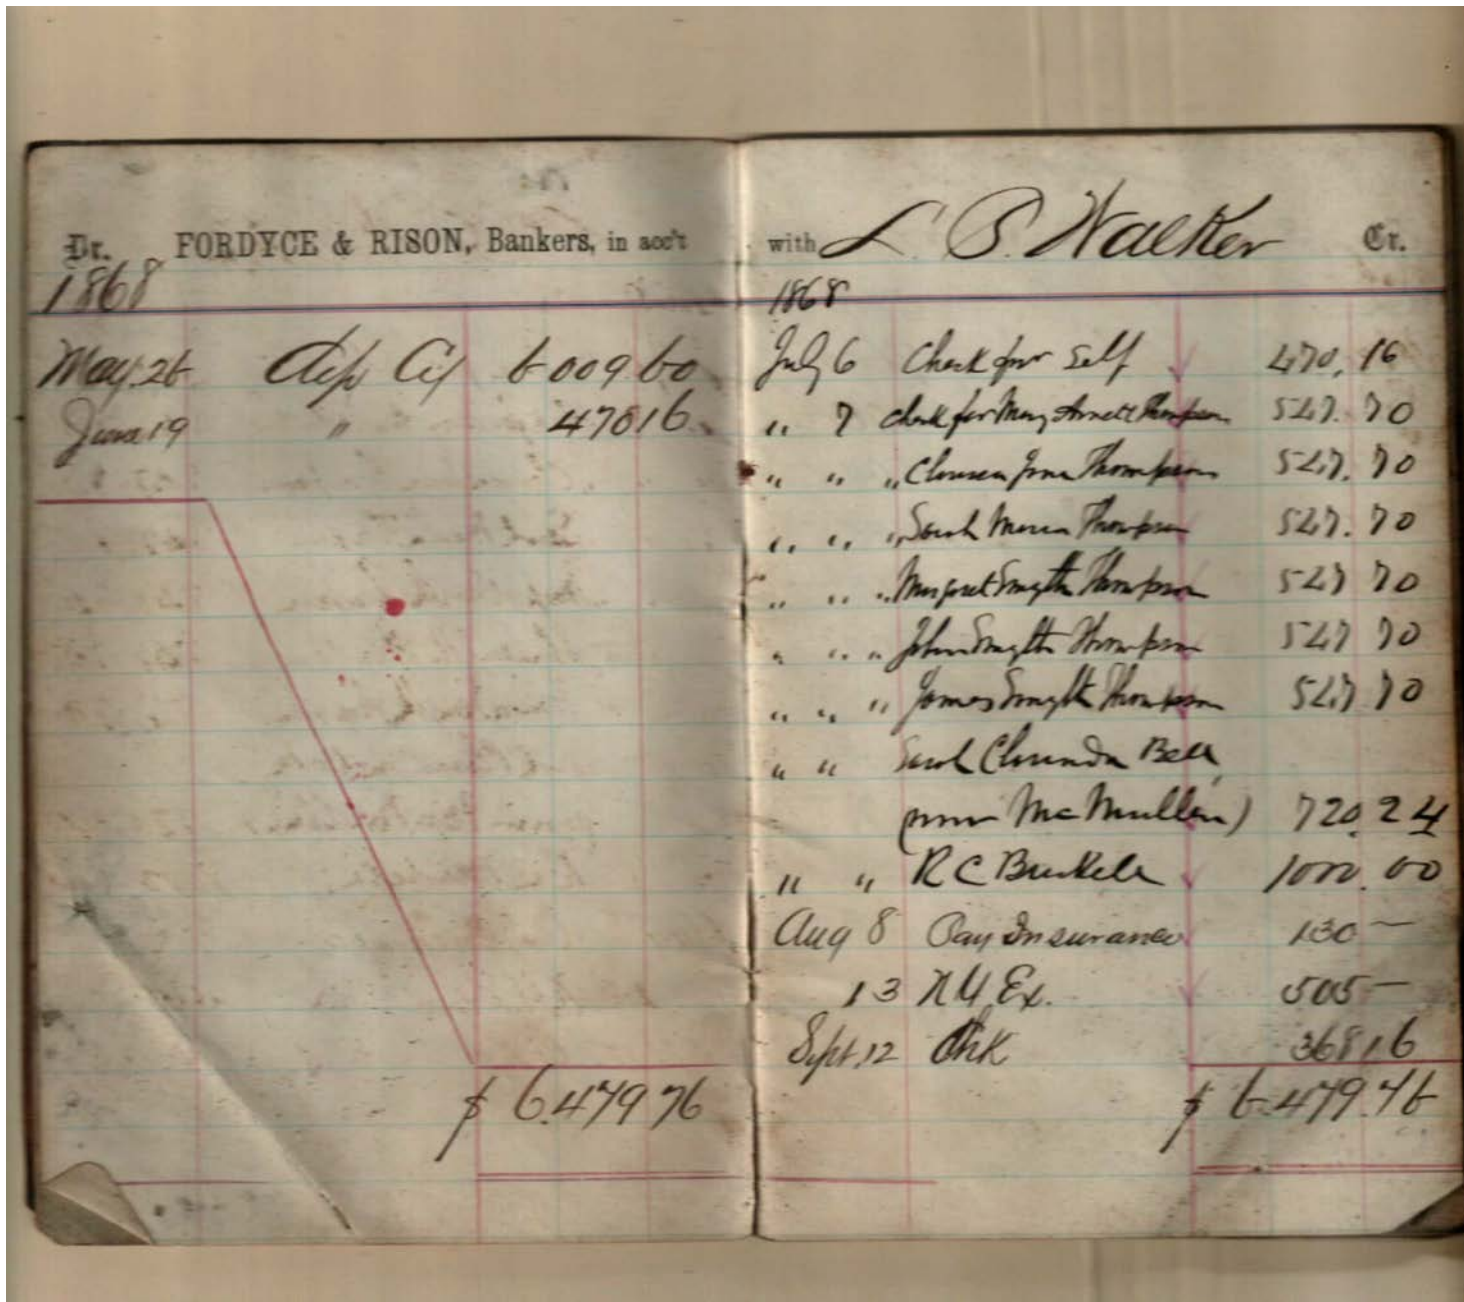 Dr. FORDYCE & RISON, Bankers, in acc't
1868
May 26 Dep C/ 6009 60
June 19 " 470 16
$ 6.479 76
with L. P. Walker Cr.
1868
July 6 Check for Self 470. 16
" 7 Check for Mary Arnett Thompson 547. 70
" " " Thompson 547. 70
" " " Sarah Thompson 547. 70
" " " Margaret Smyth Thompson 547 70
" " " John Smyth Thompson 547 70
" " " James Smyth Thompson 547 70
" " Sarah Clarinda Bell
(now McMullen) 720. 24
" " R C 1000. 00
Aug 8 Pay Insurance 130 —
13 N Y Ex. 505 —
Sept. 12 Chk 368 16
$ 6.479.76